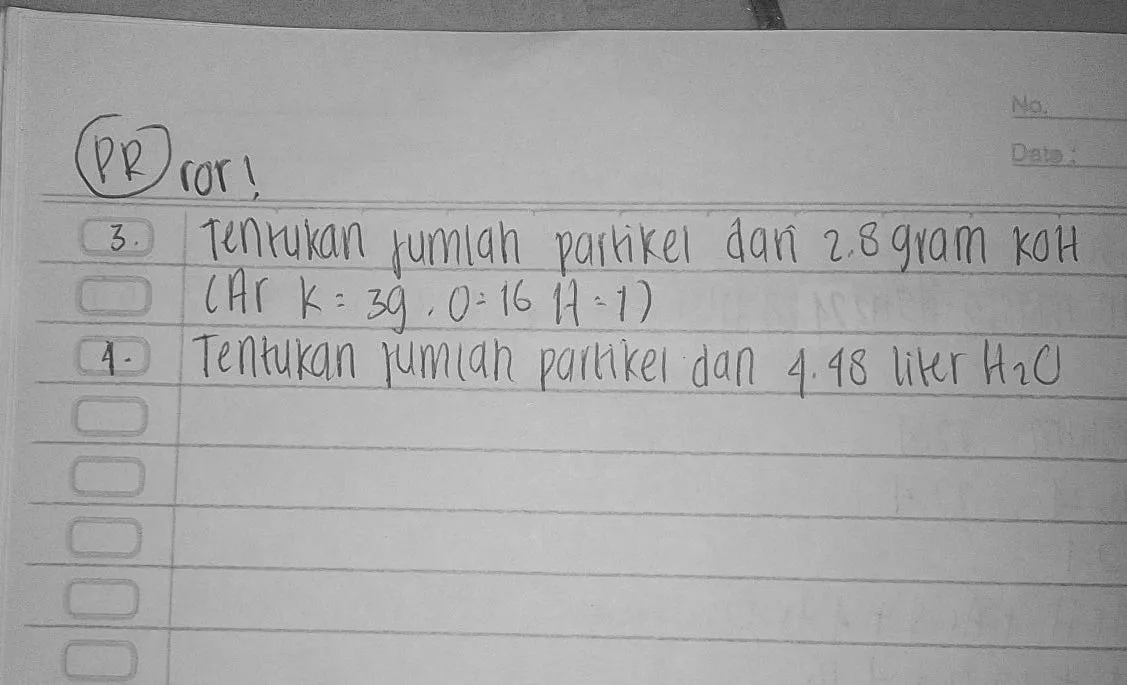 No.
Date :
PR ror!
3. Tentukan jumlah partikel dari 2.8 gram KOH
(Ar K = 39 . O = 16 H = 1)
4. Tentukan jumlah partikel dari 4.48 liter H2O